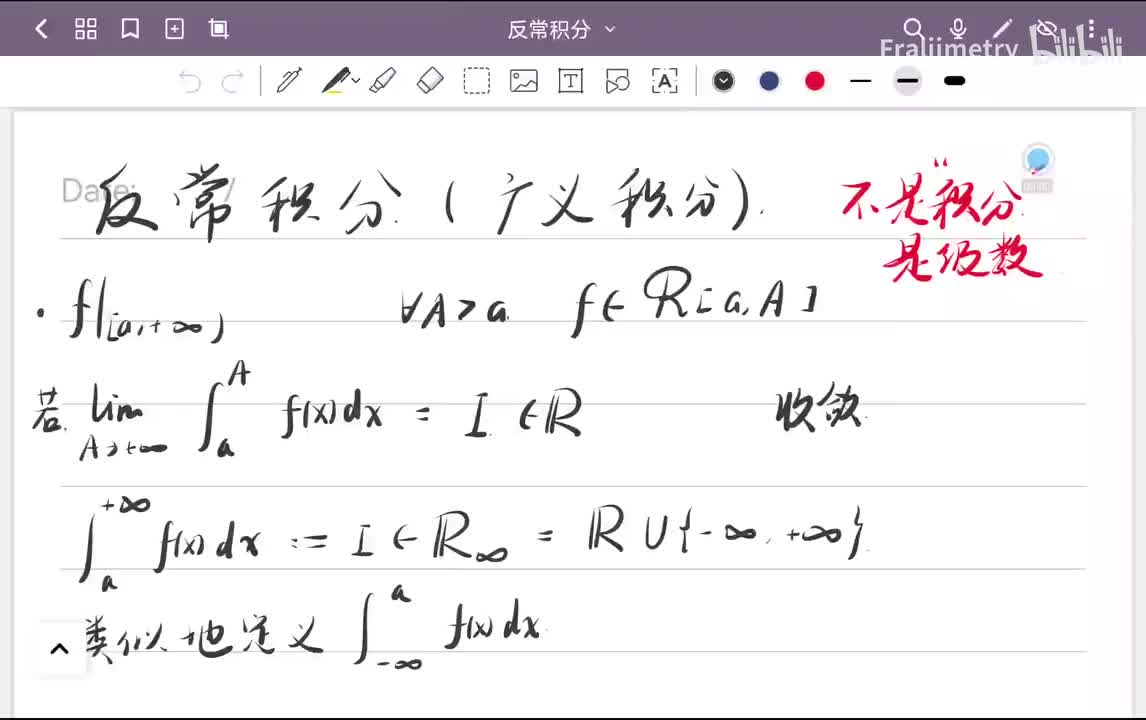 反常积分
Fraljimetry bilibili
Date: /
反常积分(广义积分).
不是"积分
是级数
· f|[a,+∞) ∀A>a f∈R[a,A]
若 lim A→+∞ ∫_a^A f(x)dx = I ∈ℝ 收敛
∫_a^{+∞} f(x)dx := I ∈ ℝ_∞ = ℝ∪{-∞, +∞}.
类似地定义 ∫_{-∞}^a f(x)dx.